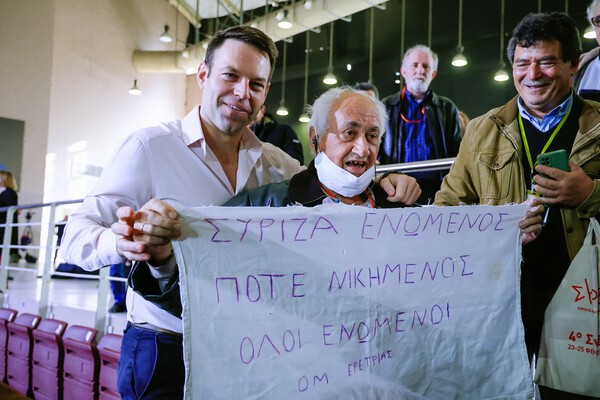 ΣΥΡΙΖΑ ΕΝΩΜΕΝΟΣ
ΠΟΤΕ ΝΙΚΗΜΕΝΟΣ
ΟΛΟΙ ΕΝΩΜΕΝΟΙ
Ο.Μ ΕΡΕΤΡΙΑΣ
4ο Συ
23-25 Φε